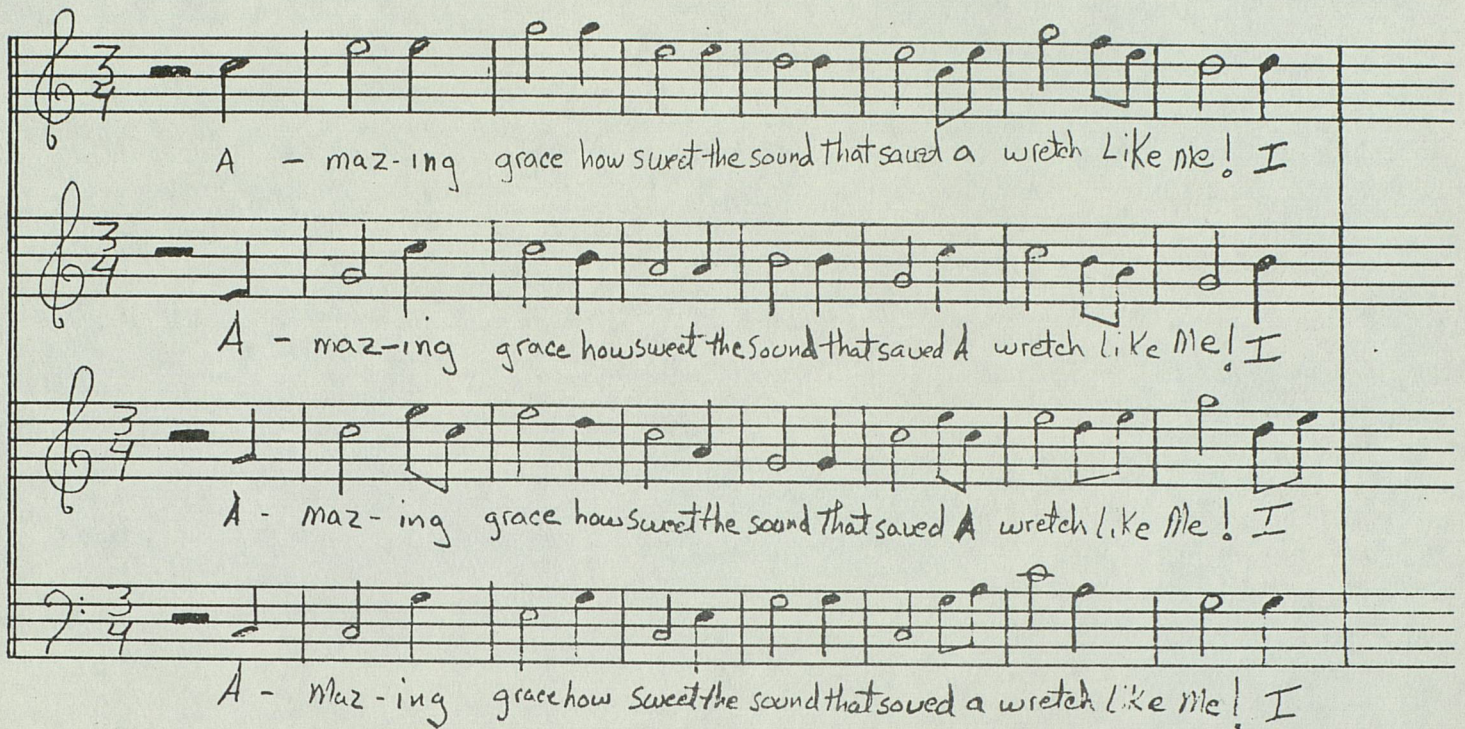 3 4
A - maz-ing grace how sweet the sound that saved a wretch Like me! I
3 4
A - maz-ing grace how sweet the sound that saved A wretch like Me! I
3 4
A - maz-ing grace how sweet the sound That saved A wretch like Me! I
3 4
A - Maz-ing grace how sweet the sound that soved a wretch like Me! I